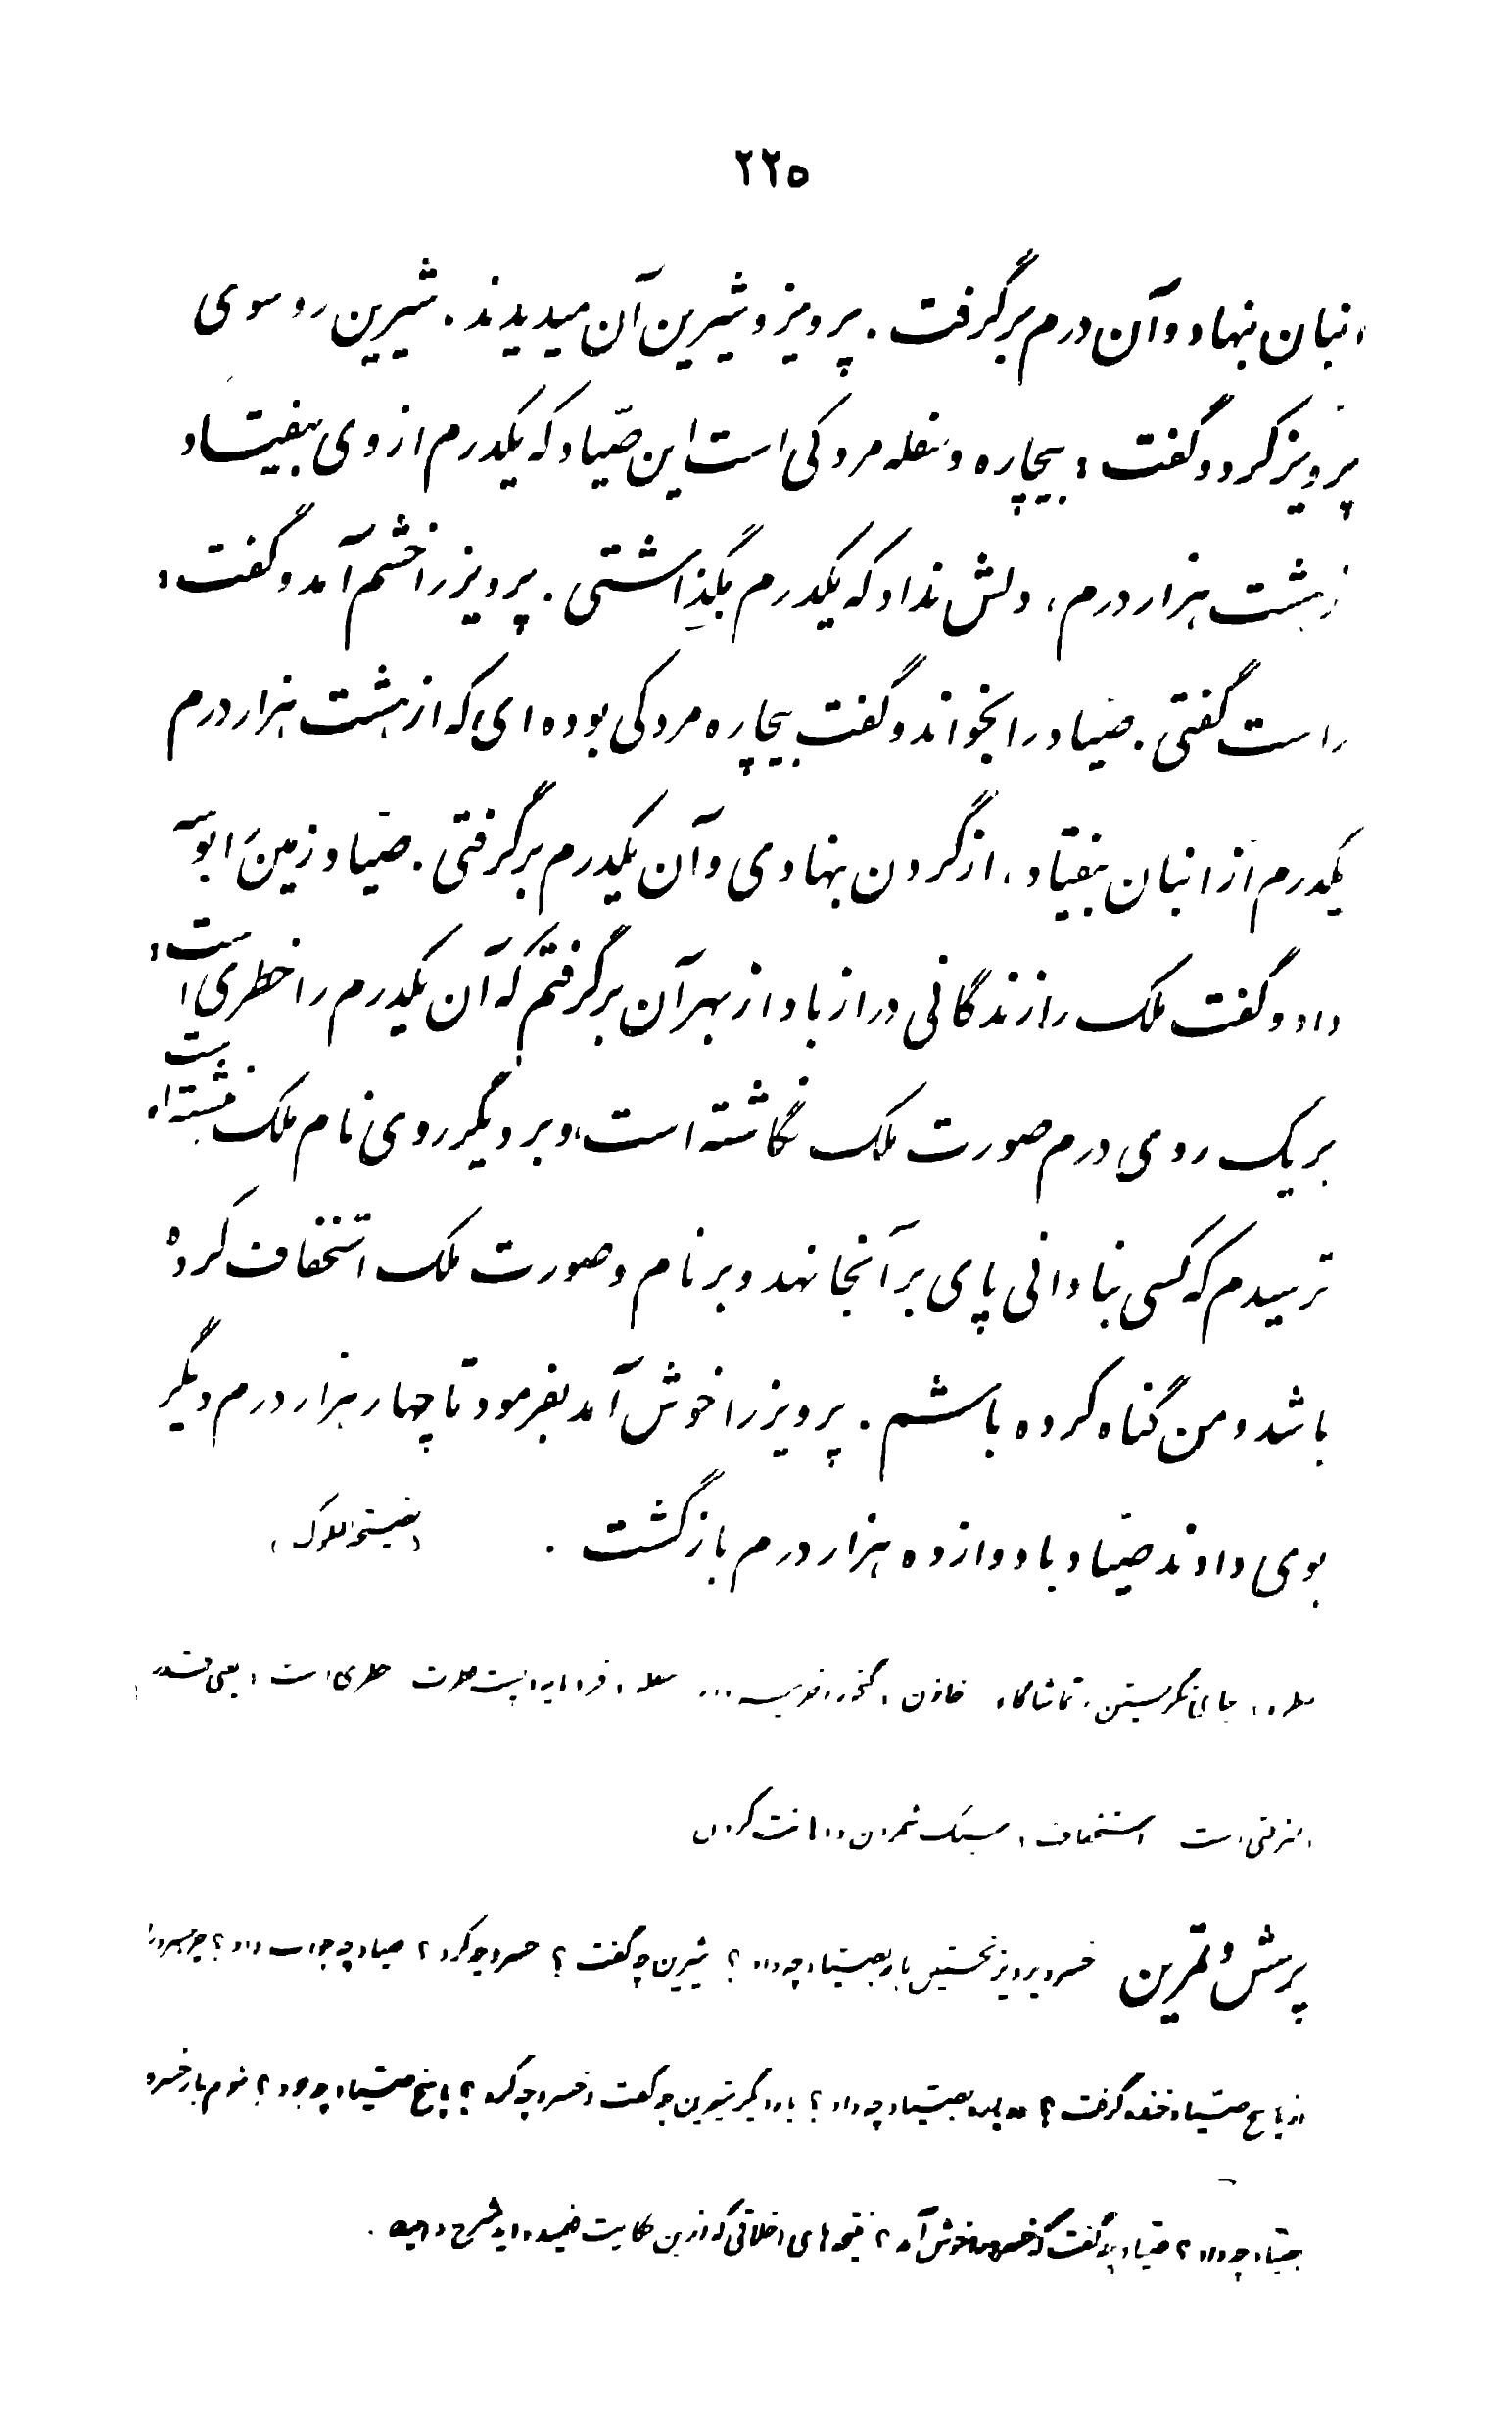 ۲۲۵
انبان بنهاد و آن درم برگرفت . پرویز و شیرین آن میدیدند . شیرین رو سوی
پرویز کرد و گفت : بیچاره و سفله مردکی است این صیّاد که یکدرم از وی بیفتاد
ز هشت هزار درم ، دلش نداد که یکدرم بگذاشتی . پرویز را خشم آمد و گفت :
راست گفتی . صیّاد را بخواند و گفت بیچاره مردکی بوده‌ای که از هشت هزار درم
یکدرم از انبان بیفتاد ، از گردن بنهادی و آن یکدرم برگرفتی . صیّاد زمین را بوسه
داد و گفت ملک را زندگانی دراز باد از بهر آن برگرفتم که آن یکدرم را خطری است :
بر یک روی درم صورت ملک نگاشته است ، و بر دیگر روی نام ملک نبشته است
ترسیدم که کسی بنادانی پای بر آنجا نهد و بر نام و صورت ملک استخفاف کرده
باشد و من گناه کرده باشم . پرویز را خوش آمد بفرمود تا چهار هزار درم دیگر
بوی دادند صیّاد با دوازده هزار درم بازگشت . ( نصیحة الملوک )
جای نگریستن ، تماشاگاه خازن : فرومایه ، پست خطری است : یعنی قدر
منزلتی است استخفاف : سبک شمردن و اهانت کردن
پرسش و تمرین خسرو پرویز نخستین بار بصیّاد چه داد ؟ شیرین چه گفت ؟ خسرو چه کرد ؟ صیاد چه جواب داد ؟ چرا خسرو را
از پاسخ صیّاد خنده گرفت ؟ بصیّاد چه داد ؟ بار دیگر شیرین چه گفت و خسرو چه کرد ؟ پاسخ صیّاد چه بود ؟ سوم بار خسرو
بصیّاد چه داد ؟ صیّاد چه گفت که خسرو را خوش آمد ؟ نتیجه‌های اخلاقی که از این حکایت فهمیده‌اید شرح دهید .